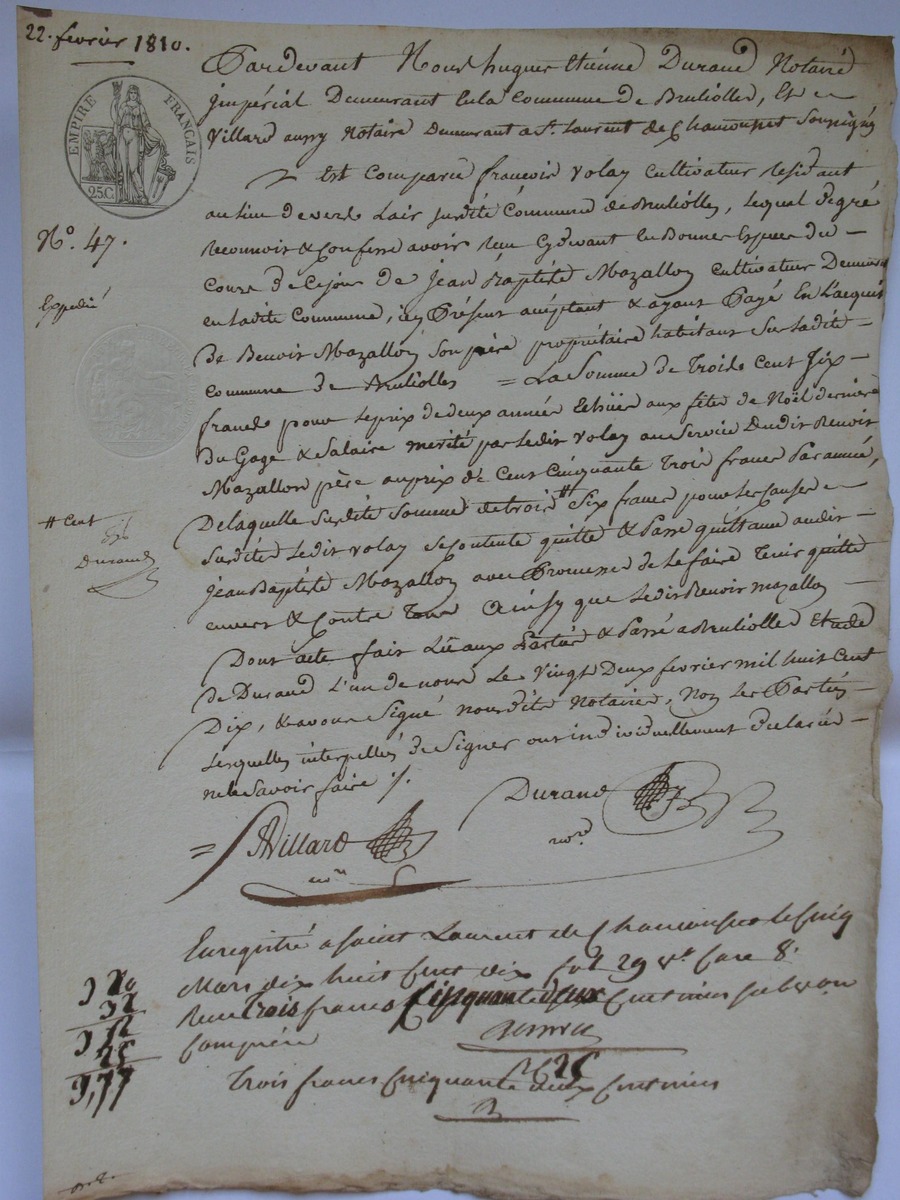 22. fevrier 1810.
EMPIRE FRANÇAIS
25C
Pardevant Nous hugues Etienne Durand Notaire
jmpérial Demeurant En la Commune de Brullioles, Et
Villard aussy Notaire Demeurant a St. Laurent de Chamousset Soussignés
Est Comparu francois Volay Cultivateur residant
au lieu de verd Lair susdite Commune de Brullioles, lequel de gré
Reconnoit & Confesse avoir Reçu Cydevant En Bonnes Especes du
Cours de Cejour de jean Baptiste Mazallon Cultivateur Demeurant
en ladite Commune, icy Présent acceptant & ayant Payé En L'acquit
de Benoit Mazallon Son père propriétaire habitant Sur ladite
Commune de Brullioles = La Somme de Trois Cent Six
francs pour le prix de deux année Echüe aux fêtes de Noël dernière
Du Gage & Salaire merité par Ledit Volay au Service Dudit Benoit
Mazallon père au prix de Cent Cinquante Trois francs Par année,
De laquelle Susdite Somme de trois # Six francs pour les Causes
Susdite Ledit Volay Se Contente quitte & Passe quittance audit
jean Baptiste Mazallon avec Promesse de Le faire Tenir quitte
envers & Contre Tous Ainsy que Ledit Benoit mazallon
Dont acte fait Lû aux Parties & Passé a Brulliolles Etude
de Durand L'un de nous Le Vingt Deux fevrier mil huit Cent
Dix, & avons Signé nousdits Notaires, Non Les Parties
Lesquelles interpellés de Signer ont individuellement declarée
ne le Savoir faire ./.
N°. 47.
Expedié
# Cent
Durand
Durand
nore
= Villard
nore
Enregistré a saint Laurent de Chamousset le Cinq
Mars dix huit Cent dix fol 29 Vo Case 8.
Reçu trois francs Cinquante deux Centimes subvon
Comprise
Trois francs Cinquante deux Centimes
3 20
32
3 52
25
3,77